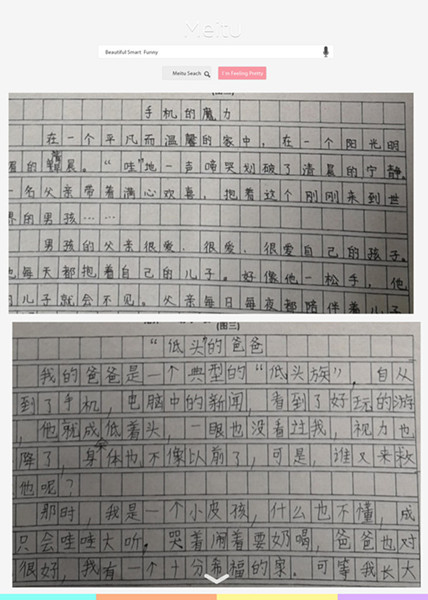 Meitu
Beautiful Smart Funny
Meitu Seach
I'm Feeling Pretty
手机的魔力
在一个平凡而温馨的家中,在一个阳光明
的清晨。“哇”地一声啼哭划破了清晨的宁静。
一名父亲带着满心欢喜,抱着这个刚刚来到世
界的男孩……
男孩的父亲很爱、很爱、很爱自己的孩子。
他每天都抱着自己的儿子。好像他一松手,他
的儿子就会不见。父亲每日每夜都陪伴着儿子
(图三)
“低头”的爸爸
我的爸爸是一个典型的“低头族”,自从
到了手机,电脑中的新闻,看到了好玩的游
,他就成天低着头,一眼也没看过我,视力也
降了,身体也不像以前了,可是,谁又来救
他呢?
那时,我是一个小皮孩,什么也不懂,成
只会哇哇大听,哭着闹着要奶喝,爸爸也对
很好,我有一个十分幸福的家。可等我长大